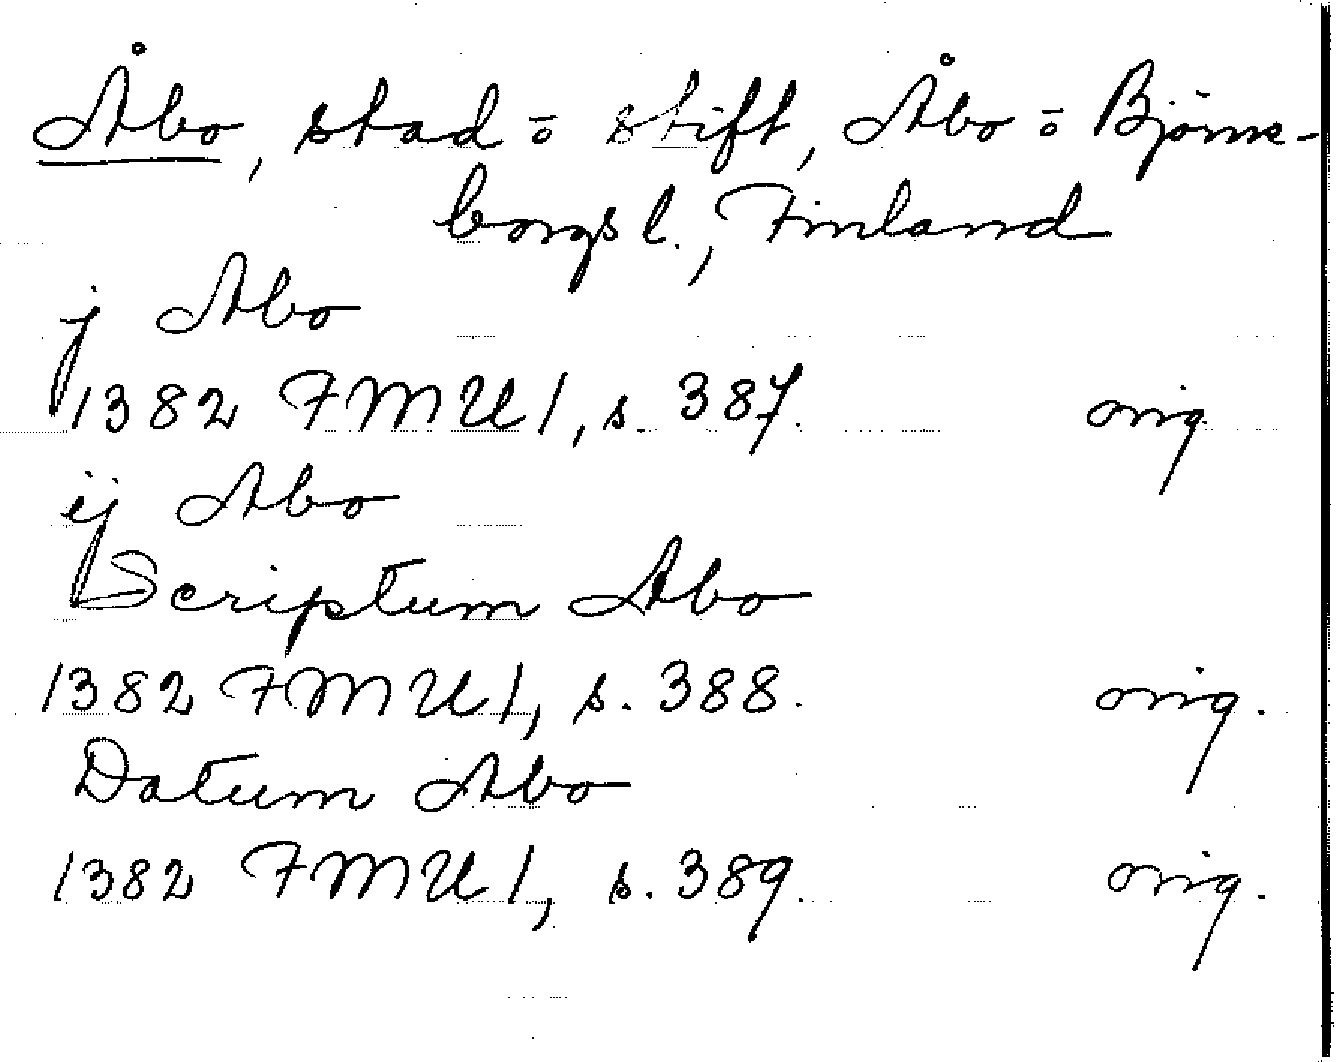 Åbo, stad o stift, Åbo o Björne-
borgs l., Finland
j Abo
1382 FMU 1, s. 387. orig
ij Abo
Scriptum Abo
1382 FMU 1, s. 388. orig.
Datum Abo
1382 FMU 1, s. 389. orig.